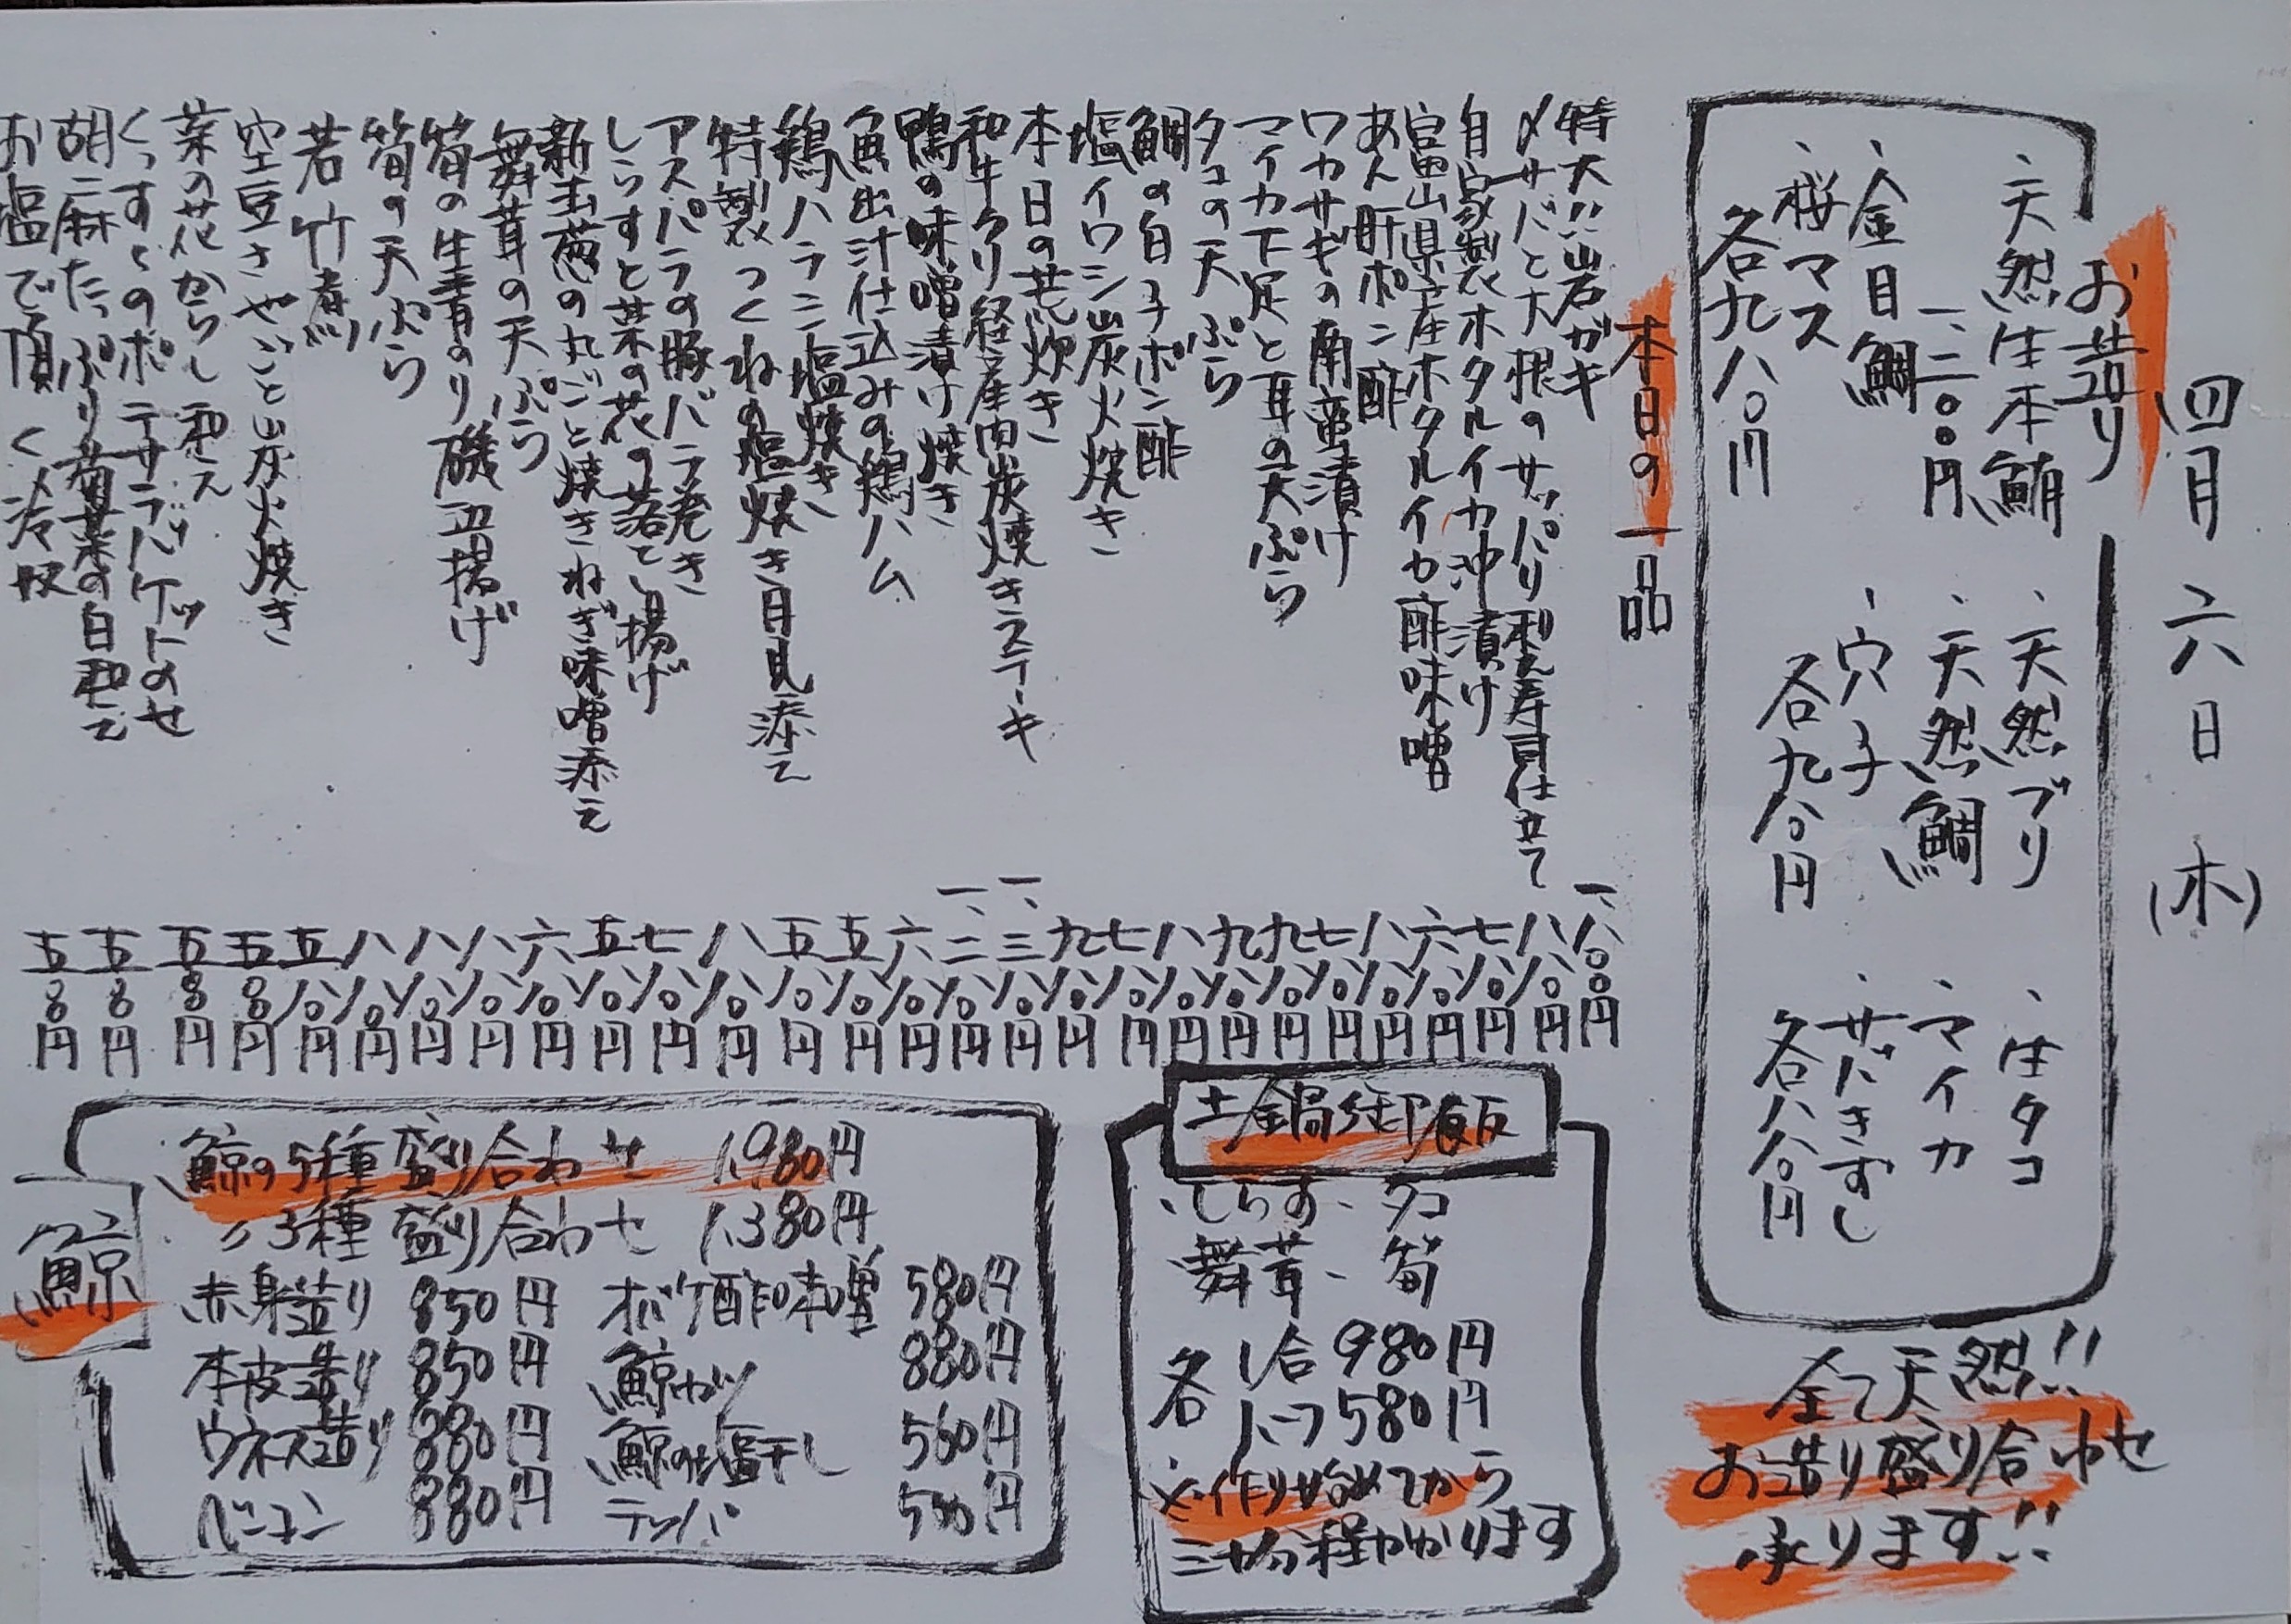 四月六日(木)
お造り
、天然生本鮪
一、二八〇円
、金目鯛
、桜マス
各九八〇円
、天然ブリ
、天然鯛
、穴子
各九八〇円
、生タコ
、マイカ
、サバきずし
各八八〇円
全て天然!!
お造り盛り合わせ
承ります!!
本日の一品
特大!!岩ガキ 一、八〇〇円
〆サバと大根のサッパリ 仕立て 八八〇円
自家製ホタルイカ沖漬け 七八〇円
富山県産ホタルイカ酢味噌 六八〇円
あん肝ポン酢 八八〇円
ワカサギの南蛮漬け 七八〇円
マイカ下足と耳の天ぷら 九八〇円
タコの天ぷら 九八〇円
鯛の白子ポン酢 八八〇円
塩イワシ炭火焼き 七八〇円
本日の荒炊き 九八〇円
和牛クリ経産肉炭焼きステーキ 一、三八〇円
鴨の味噌漬け焼き 一、二八〇円
魚出汁仕込みの鶏ハム 六八〇円
鶏ハラミ塩焼き 五八〇円
特製つくねの塩焼き月見添え 五八〇円
アスパラの豚バラ巻き 八八〇円
しらすと菜の花の落とし揚げ 七八〇円
新玉葱の丸ごと焼きねぎ味噌添え 五八〇円
舞茸の天ぷら 六八〇円
筍の生青のり磯辺揚げ 八八〇円
筍の天ぷら 八八〇円
若竹煮 八八〇円
空豆さやごと炭火焼き 五八〇円
菜の花からし和え 五八〇円
くんすとのポテサラバケットのせ 五八〇円
胡麻たっぷり菊菜の白和え 五八〇円
お塩で頂く冷奴 五八〇円
土鍋御飯
、しらす、タコ
、舞茸、筍
各 1合 980円
ハーフ 580円
※作り始めてから
三十分程かかります
鯨
鯨の5種盛り合わせ 1,980円
〃3種盛り合わせ 1,380円
赤身造り 850円 オバケ酢味噌 580円
本皮造り 850円 鯨カツ 880円
ウネス造り 880円 鯨の塩干し 560円
ベーコン 880円 テッパ 580円